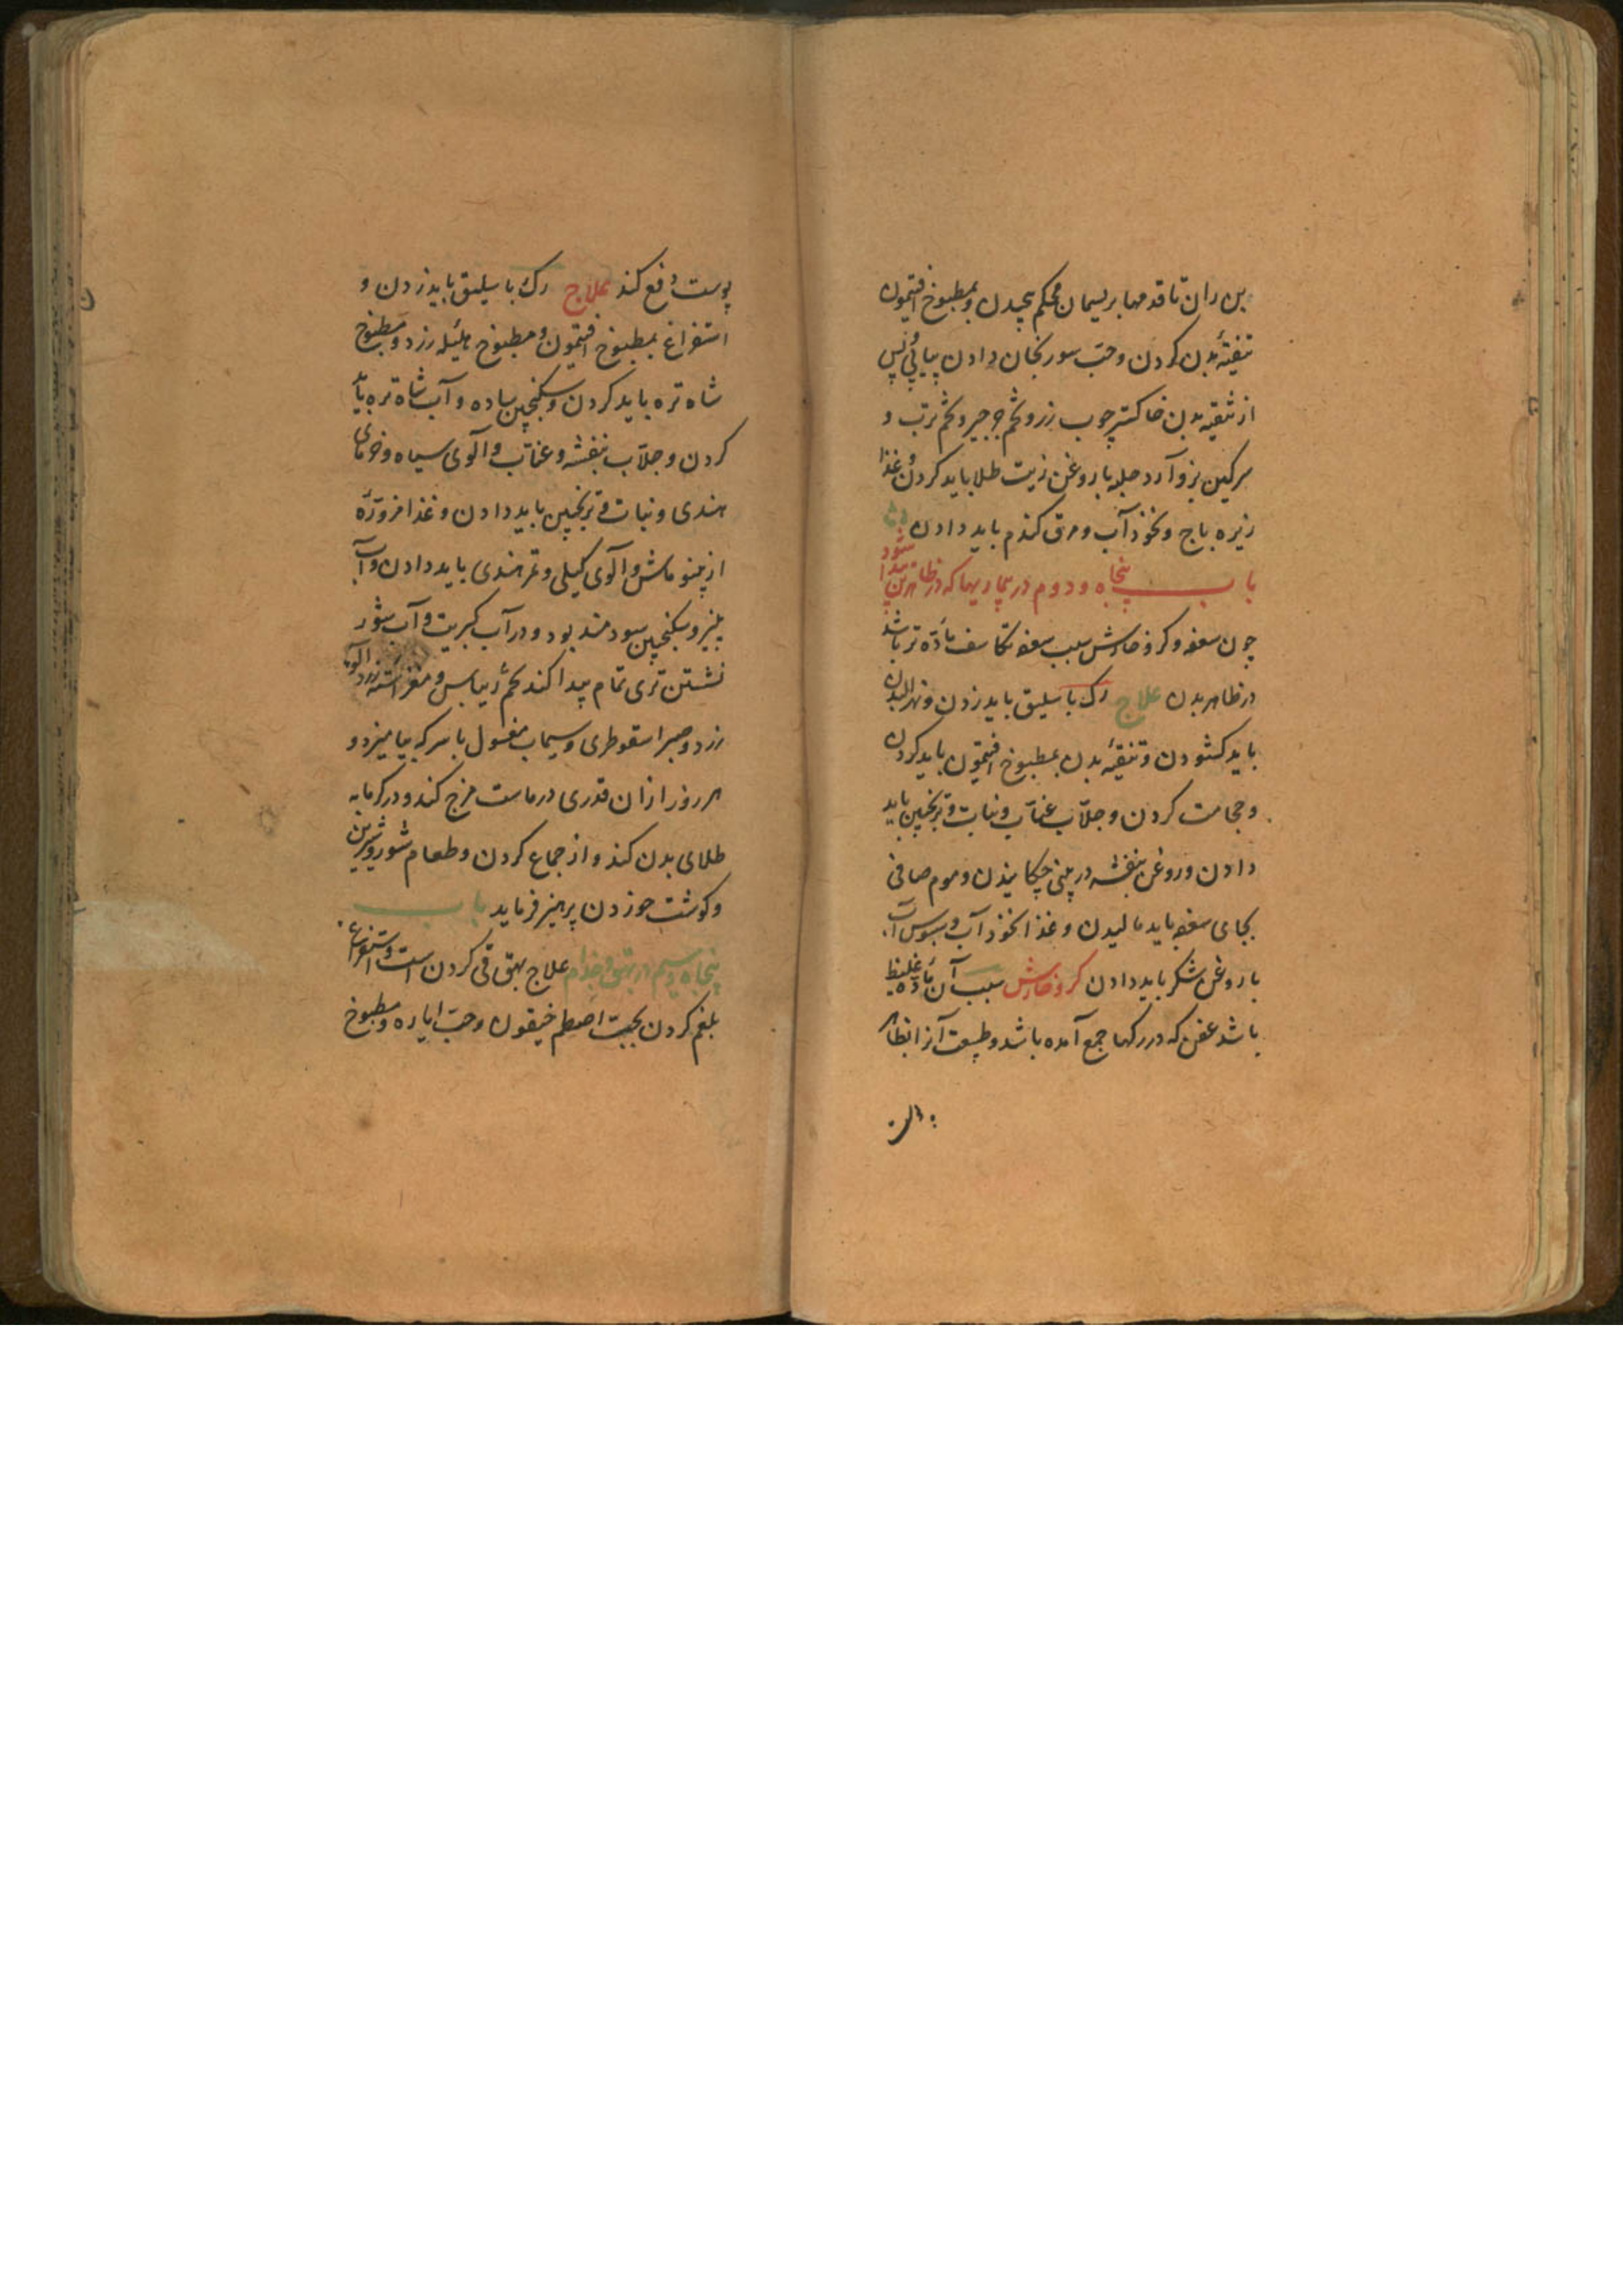 بن ران تا قدمها بریسمان محکم پیچیدن و بمطبوخ افتیمون
تنقیهٔ بدن کردن و حبّ سورنجان دادن پیاپی و پس
از تنقیه بدن خاکستر چوب رز و تخم جرجیر و تخم ترب و
سرکین بز و آرد حلبه با روغن زیت طلا باید کردن و غذا
زیره باج و نخوذ آب و مرق کندم باید دادن
باب پنجاه و دوم در بیماریها که در ظاهر بدن پیدا شود
چون سعفه و کر و خارش سبب سعفه تکاسف مادّه تر باشد
در ظاهر بدن علاج رک باسلیق باید زدن و نهر البدن
باید کشودن و تنقیهٔ بدن بمطبوخ افتیمون باید کردن
و حجامت کردن و جلّاب عنّاب و نبات و ترنجبین باید
دادن و روغن بنفشه در بینی چکانیدن و موم صافی
بجای سعفه باید مالیدن و غذا نخوذ آب و سبوس آب
با روغن شکر باید دادن کر و خارش سبب آن مادّه غلیظ
باشد عفن که در رکها جمع آمده باشد و طبیعت آنرا بظاهر
پوست دفع کند علاج رک باسلیق باید زدن و
استفراغ بمطبوخ افتیمون و مطبوخ هلیله زرد و مطبوخ
شاه تره باید کردن و سکنجبین ساده و آب شاه تره باید
کردن و جلّاب بنفشه و عنّاب و آلوی سیاه و خرمای
هندی و نبات و ترنجبین باید دادن و غذا مزوّرهٔ
از پنو ماش و آلوی کیلی و تمر هندی باید دادن و آب
پنیر و سکنجبین سودمند بود و در آب کبریت و آب شور
نشستن تری تمام پیدا کند تخم ریباس و مغز استه زرد آلو
زرد و صبر اسقوطری و سیماب مغسول با سرکه بیامیزد و
هر روز از ان قدری در ماست مزج کند و در کرمابه
طلای بدن کند و از جماع کردن و طعام شور و شیرین
و کوشت خوردن پرهیز فرماید باب
پنجاه و سیم در بهق و جذام علاج بهق قی کردن است و استفراغ
بلغم کردن بحبّ اصطمخیقون و حبّ ایاره و مطبوخ